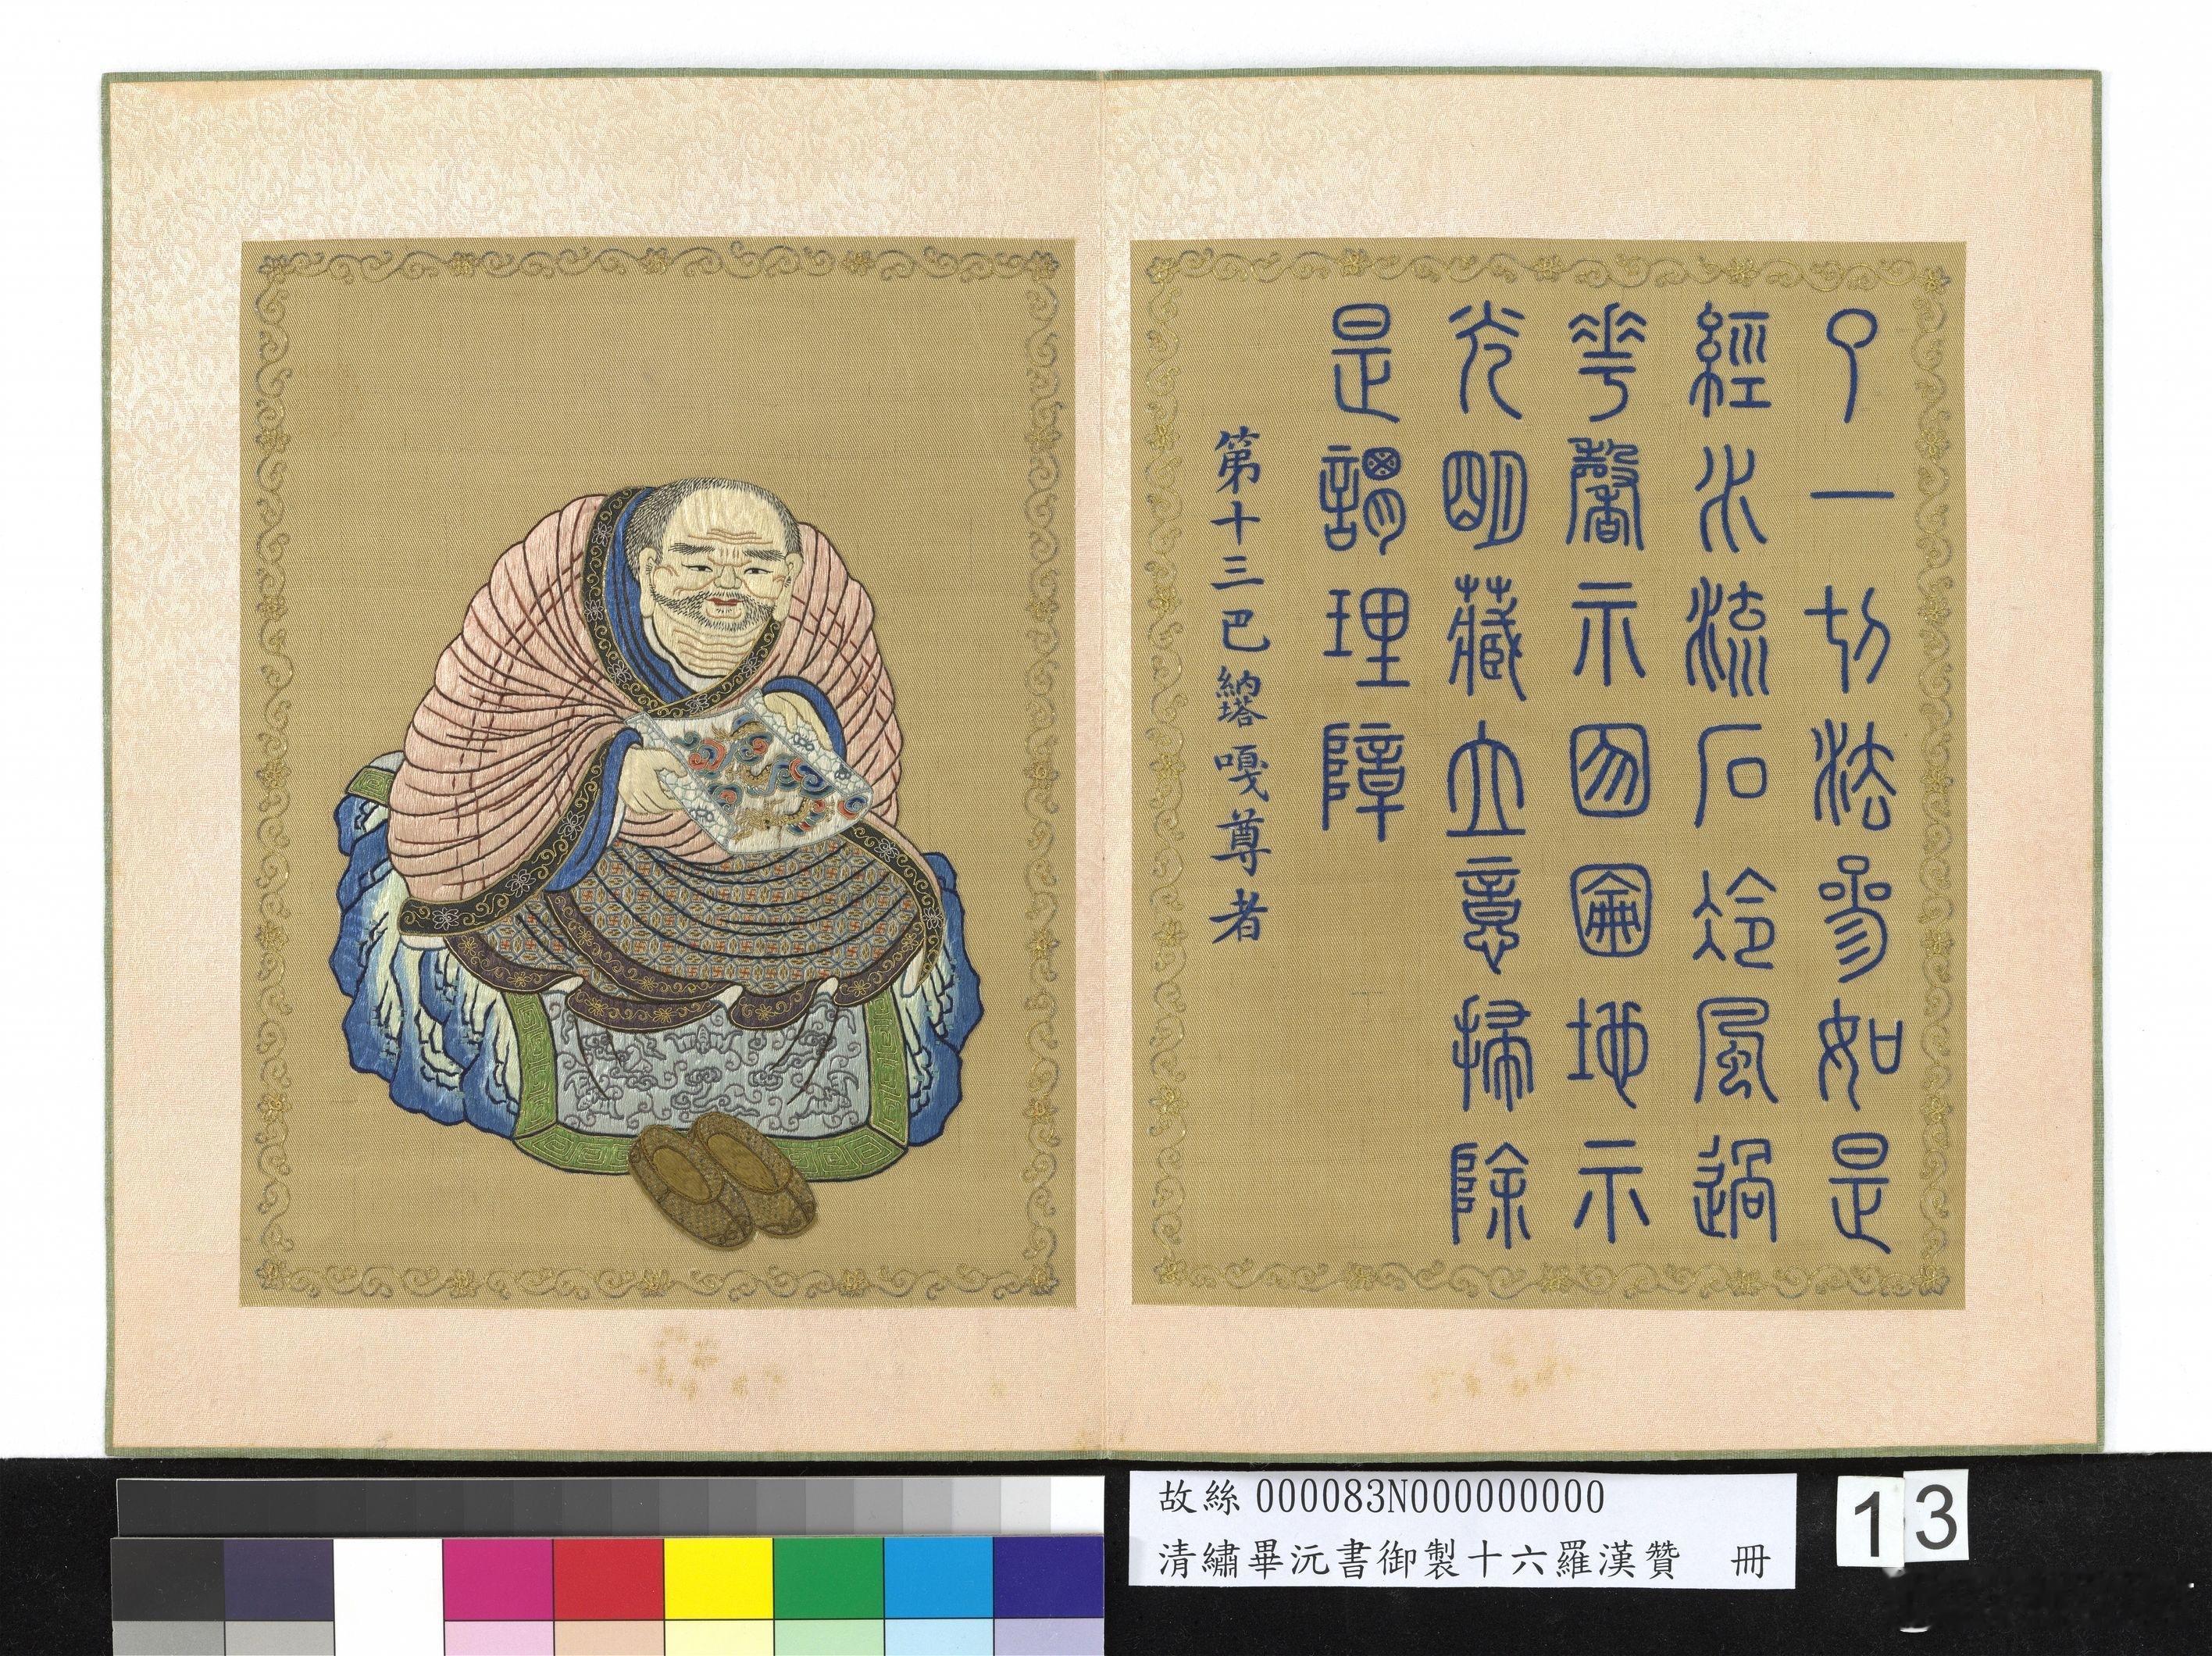 了一切法參如是
經水流石冷風過
華馨示囫圇地示
光明藏立意掃除
是謂理障
第十三巴納塔嘎尊者
故絲000083N000000000
清繡畢沅書御製十六羅漢贊 冊
13